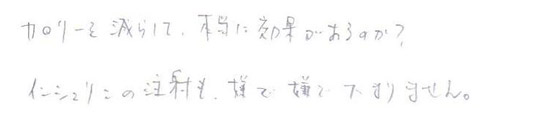 カロリーを減らして、本当に効果があるのか?
インシュリンの注射も、嫌で嫌でたまりません。